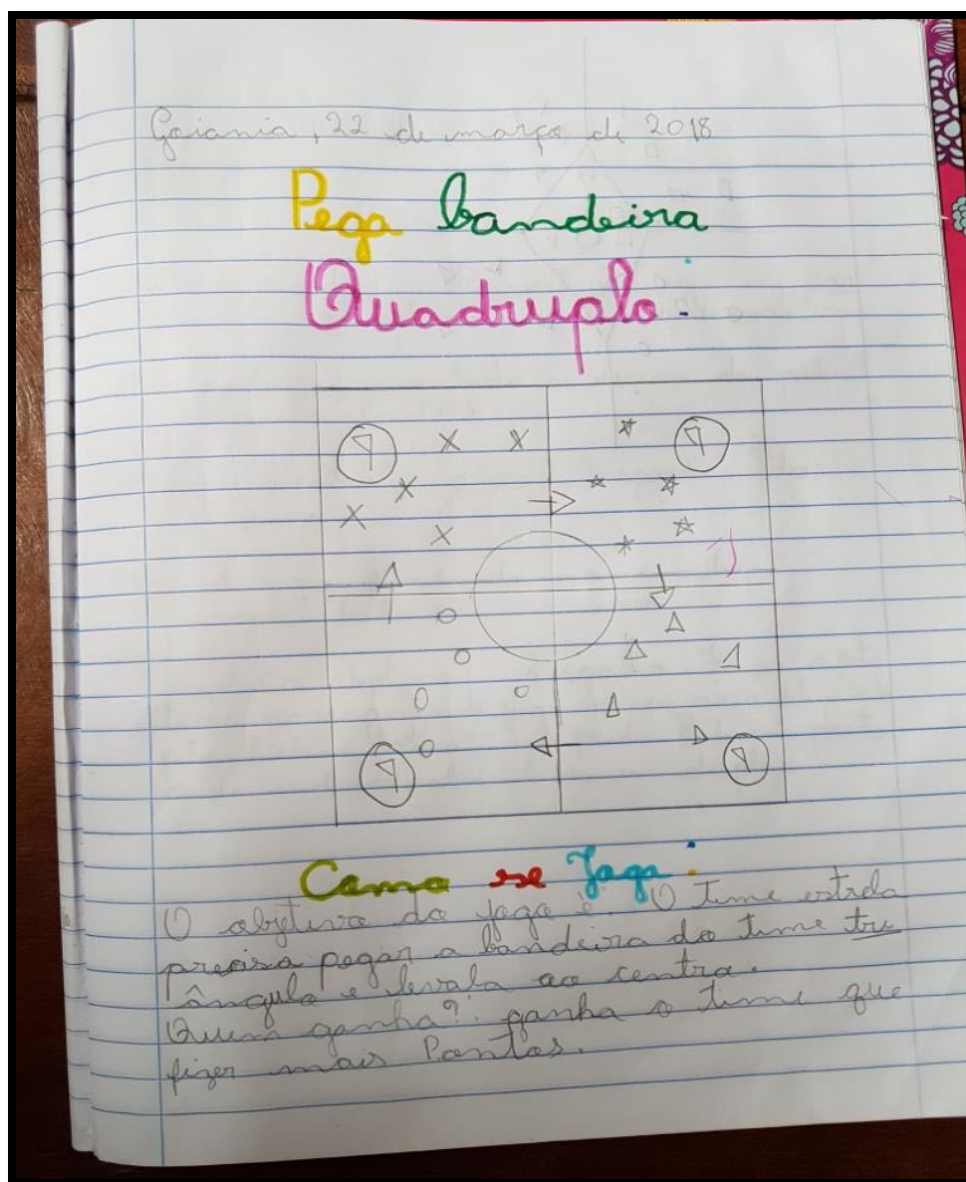 Goiania, 22 de março de 2018
Pega bandeira
Quadruplo:
Como se Joga:
O objetivo do jogo é. O Time estrela
precisa pegar a bandeira do time tri
ângulo e levala ao centro.
Quem ganha?: ganha o time que
fizer mais Pontos.